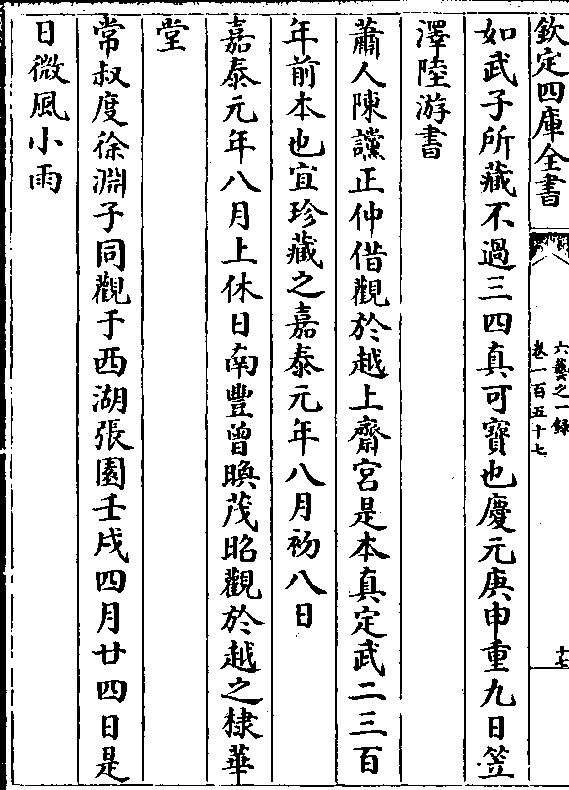 欽定四庫全書
六藝之一録
卷一百五十七
十七
如武子所藏不過三四真可寶也慶元庚申重九日笠
澤陸游書
蕭人陳讜正仲借觀於越上齋宮是本真定武二三百
年前本也宜珍藏之嘉泰元年八月初八日
嘉泰元年八月上休日南豐曾㬇茂昭觀於越之棣華
堂
常叔度徐淵子同觀于西湖張園壬戌四月廿四日是
日微風小雨